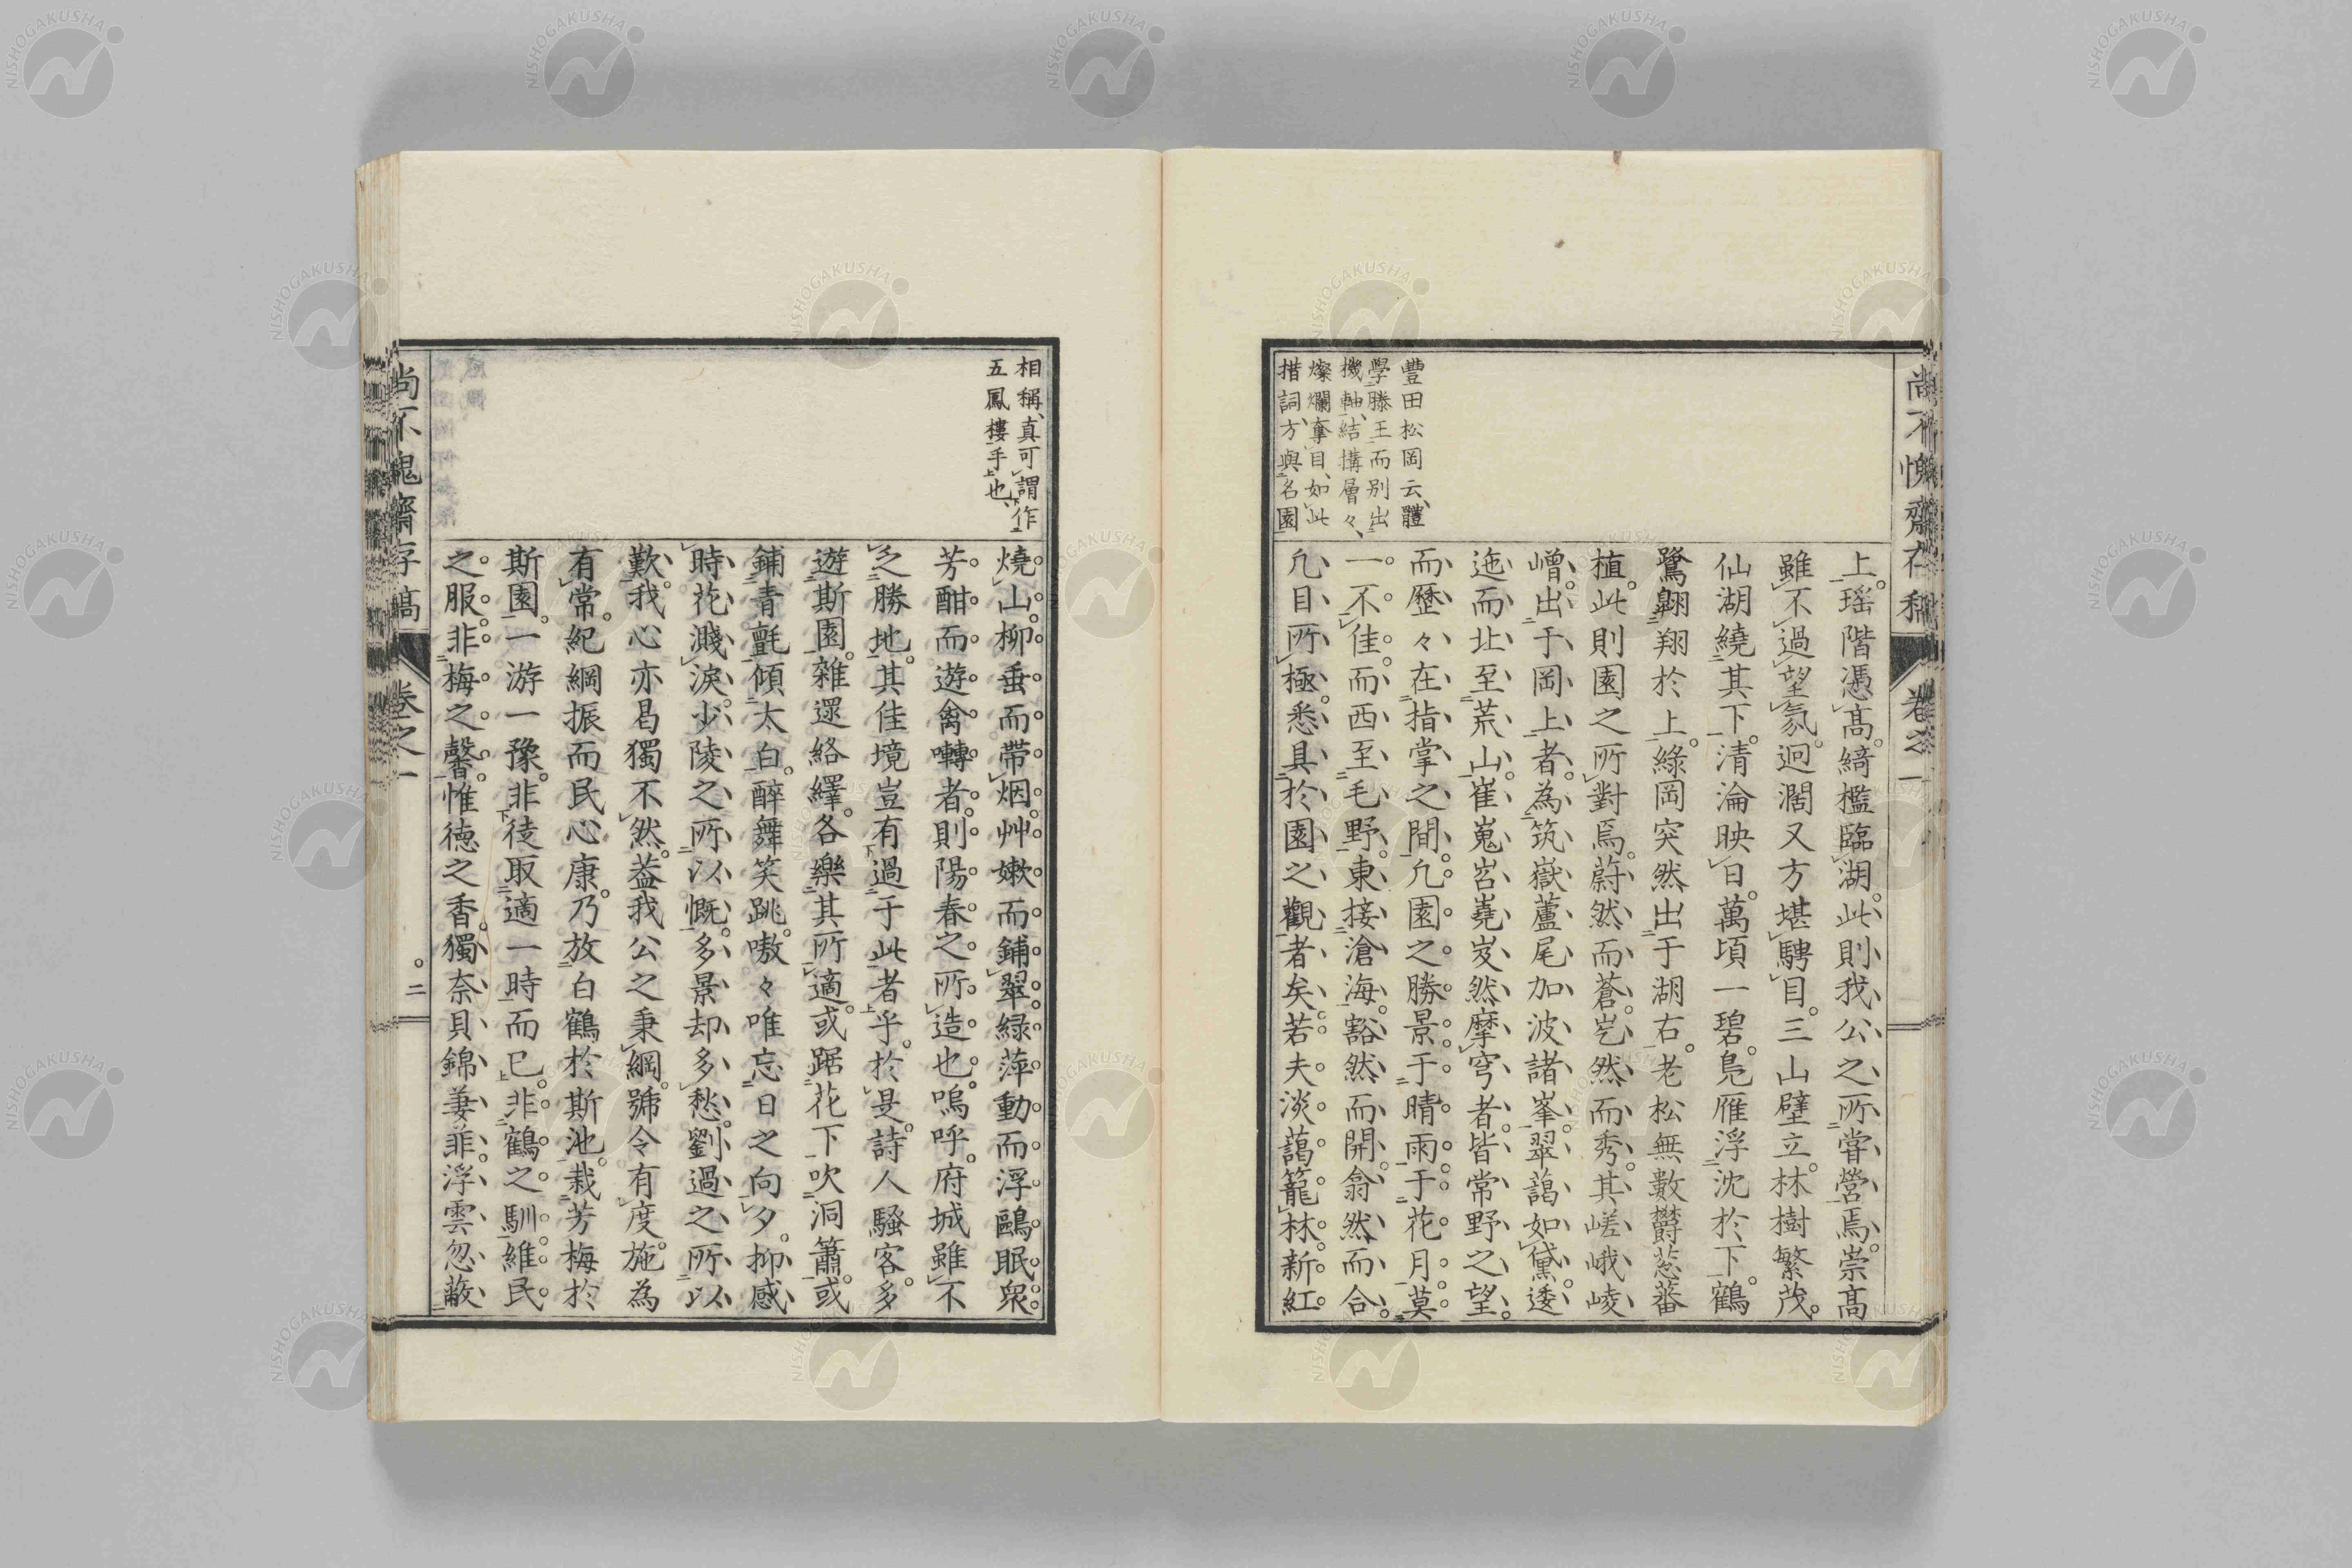 豊田松岡云、體
學滕王而別出
機軸、結搆層々、
燦爛奪目、如此
措詞、方與名園
上。瑶階憑高。綺檻臨湖。此則我公之所甞營焉。崇高
雖不過望氛。迥濶又方堪騁目。三山壁立。林樹繁茂。
仙湖繞其下。清淪映日。萬頃一碧。鳧雁浮沈於下。鶴
鷺翺翔於上。綠岡突然出于湖右。老松無數欝葱蕃
植。此則園之所對焉。蔚然而蒼。岂然而秀。其嵯峨崚
嶒。出于岡上者。為筑嶽蘆尾加波諸峯。翠藹如黛。逶
迤而北至荒山。崔嵬岧嶤。岌然摩穹者。皆常野之望。
而歷々在指掌之間。凡園之勝景。于晴雨。于花月。莫
一不佳。而西至毛野。東接滄海。豁然而開。翕然而合。
凡目所極。悉具於園之觀者矣。若夫淡藹籠林。新紅
相稱、真可謂作
五鳳樓手也、
燒山。柳垂而帶烟。艸嫩而鋪翠。緑萍動而浮鷗眠。衆
芳酣而遊禽囀者。則陽春之所造也。嗚呼。府城雖不
乏勝地。其佳境豈有過于此者乎。於是。詩人騷客。多
遊斯園。雜遝絡繹。各樂其所適。或踞花下吹洞簫。或
鋪青氈傾太白。醉舞笑跳。嗷々唯忘日之向夕。抑感
時花濺淚。少陵之所以慨。多景却多愁。劉過之所以
歎。我心亦曷獨不然。葢我公之秉綱。號令有度。施為
有常。紀綱振而民心康。乃放白鶴於斯池。栽芳梅於
斯園。一游一豫。非徒取適一時而已。非鶴之馴。維民
之服。非梅之馨。惟德之香。獨奈貝錦萋菲。浮雲忽蔽
尚不愧齋存稿
卷之一
二